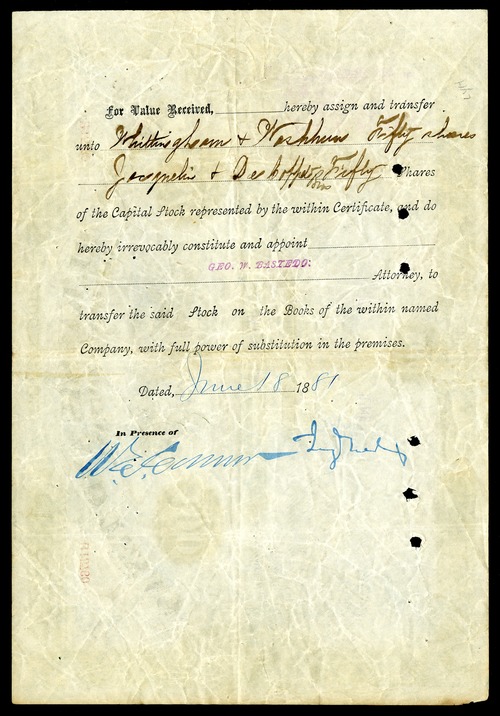 For Value Received, hereby assign and transfer
unto Whittingham & Washburn Fifty shares
Jacquelin & Fifty Shares
of the Capital Stock represented by the within Certificate, and do
hereby irrevocably constitute and appoint
GEO. W. BASTEDO.
Attorney, to
transfer the said Stock on the Books of the within named
Company, with full power of substitution in the premises.
Dated, June 18 1881
In Presence of